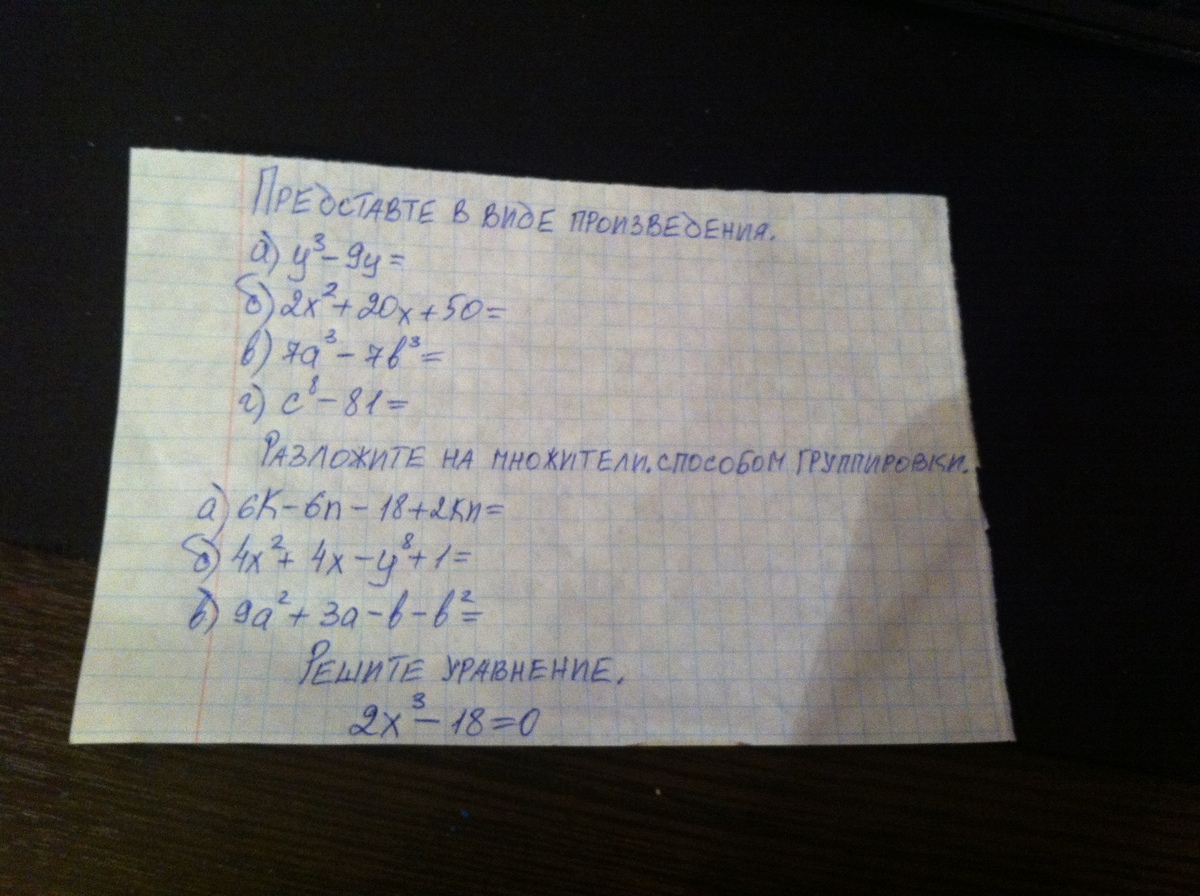 Представте в виде произведения.
а) y³ - 9y =
б) 2x² + 20x + 50 =
в) 7a³ - 7b³ =
г) c⁸ - 81 =
Разложите на множители. способом группировки.
а) 6k - 6n - 18 + 2kn =
б) 4x² + 4x - y⁸ + 1 =
в) 9a² + 3a - b - b² =
Решите уравнение.
2x³ - 18 = 0